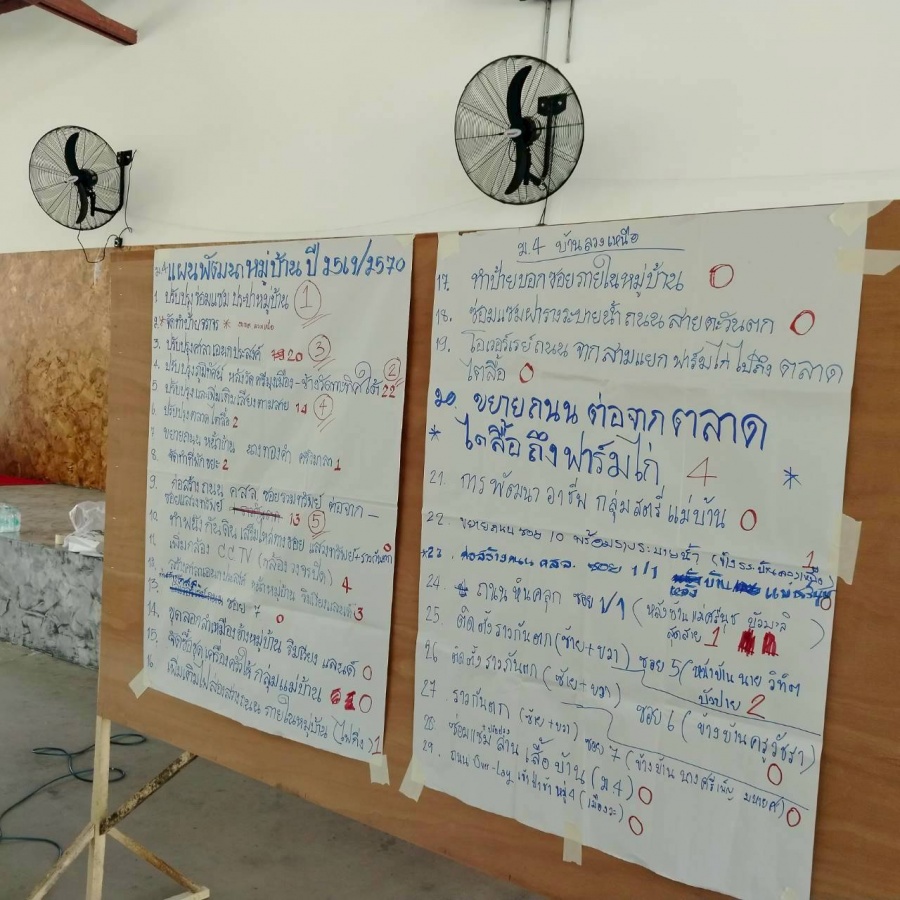 ม.4 แผนพัฒนาหมู่บ้าน ปี 2569/2570
1. ปรับปรุงซ่อมแซม ประปาหมู่บ้าน 1
2. * จัดทำป้ายจราจร *
3. ปรับปรุงศาลาเอนกประสงค์ 20 3
4. ปรับปรุงภูมิทัศน์ หลังวัดศรีมุงเมือง - 22 2
5. ปรับปรุงและเพิ่มเติมเสียงตามสาย 14 4
6. ปรับปรุงตลาดไตลื้อ 2
7. ขยายถนน หน้าบ้าน นางทองคำ 1
8. จัดทำที่พักขยะ 2
9. ก่อสร้างถนน คสล. ซอยรวมทรัพย์ ต่อจาก -
ซอยแสงทรัพย์ 13 5
10. ทำพนังกันดิน
11. เพิ่มกล้อง CCTV (กล้องวงจรปิด) 4
12. 3
13. ซอย 7 0
14. ขุดลอกลำเหมืองข้างหมู่บ้าน ริมเวียง แลนด์ 0
15. จัดซื้อชุดเครื่องครัวให้กลุ่มแม่บ้าน 0
16. เพิ่มเติมไฟส่องสว่างถนน ภายในหมู่บ้าน (ไฟกิ่ง) 1
ม.4 บ้านลวงเหนือ
17. ทำป้ายบอกซอยภายในหมู่บ้าน 0
18. ซ่อมแซมฝารางระบายน้ำ ถนน สายตะวันตก 0
19. โอเวอร์เลย์ถนน จากสามแยก ฟาร์มไก่ ไปถึง ตลาด
ไตลื้อ 0
20. ขยายถนน ต่อจาก ตลาด
* ไตลื้อ ถึง ฟาร์มไก่ 4 *
21. การ พัฒนา อาชีพ กลุ่มสตรี แม่บ้าน 0
22. ขยายถนน ซอย 10 พร้อมรางระบายน้ำ (ข้างรร.บ้านลวงเหนือ) 1
*23. ก่อสร้างถนน คสล. ซอย 1/1 0
24. ถนนหินคลุก ซอย 1/1 (หลังบ้านแม่ศรีนุช บัวมะลิ)
สุดสาย 1
25. ติดตั้งรางกันตก (ซ้าย+ขวา) ซอย 5 (หน้าบ้าน นาย
2
26. ติดตั้ง รางกันตก (ซ้าย+ขวา) ซอย 6 (ข้างบ้านครูวัชรา) 0
27. รางกันตก (ซ้าย+ขวา) ซอย 7 (ข้างบ้าน นางศรีเพ็ญ 0
28. ซ่อมแซม ลาน เสื้อบ้าน (ม.4) 0
29. ถนน Over-lay เข้าป่าช้า หมู่ 4 0